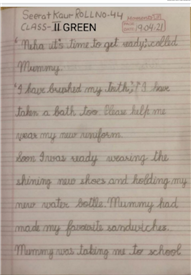 Seerat Kaur ROLLNO-44
CLASS- II GREEN 19-04-21
"Neha it's time to get ready", called
Mummy.
"I have brushed my teeth," I have
taken a bath too. Please help me
wear my new uniform.
Soon I was ready wearing the
shining new shoes and holding my
new water bottle. Mummy had
made my favourite sandwiches.
Mummy was taking me to school